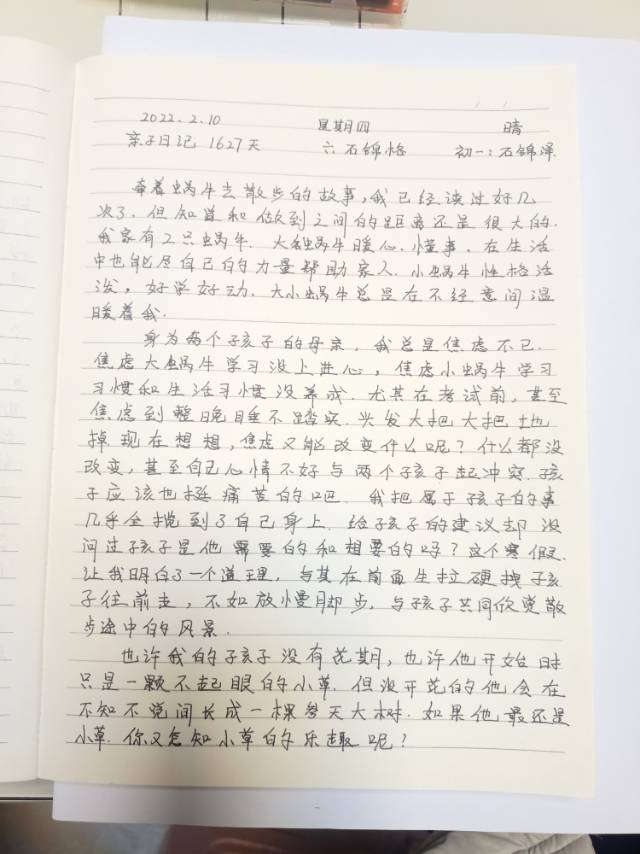 2022.2.10 星期四 晴
亲子日记 1627天 六石锦恪 初一:石锦泽
牵着蜗牛去散步的故事,我已经读过好几
次了.但知道和做到之间的距离还是很大的.
我家有2只蜗牛.大蜗牛暖心.懂事.在生活
中也能尽自己的力量帮助家人.小蜗牛性格活
泼,好学好动.大小蜗牛总是在不经意间温
暖着我.
身为两个子孩子的母亲,我总是焦虑不已.
焦虑大蜗牛学习没上进心,焦虑小蜗牛学习
习惯和生活习惯没养成.尤其在考试前,甚至
焦虑到整晚睡不踏实.头发大把大把地
掉现在想想,焦虑又能改变什么呢?什么都没
改变,甚至自己心情不好与两个子孩子起冲突.孩
子应该也挺痛苦的吧.我把属于孩子的事
几乎全揽到了自己身上.给子孩子的建议却没
问过孩子是他需要的和想要的吗?这个寒假.
让我明白了一个道理,与其在前面生拉硬拽孩
子往前走,不如放慢脚步,与孩子共同欣赏散
步途中的风景.
也许我的子孩子没有花期,也许他开始时
只是一颗不起眼的小草.但没开花的他会在
不知不觉间长成一棵参天大树.如果他最还是
小草.你又怎知小草的乐趣呢?